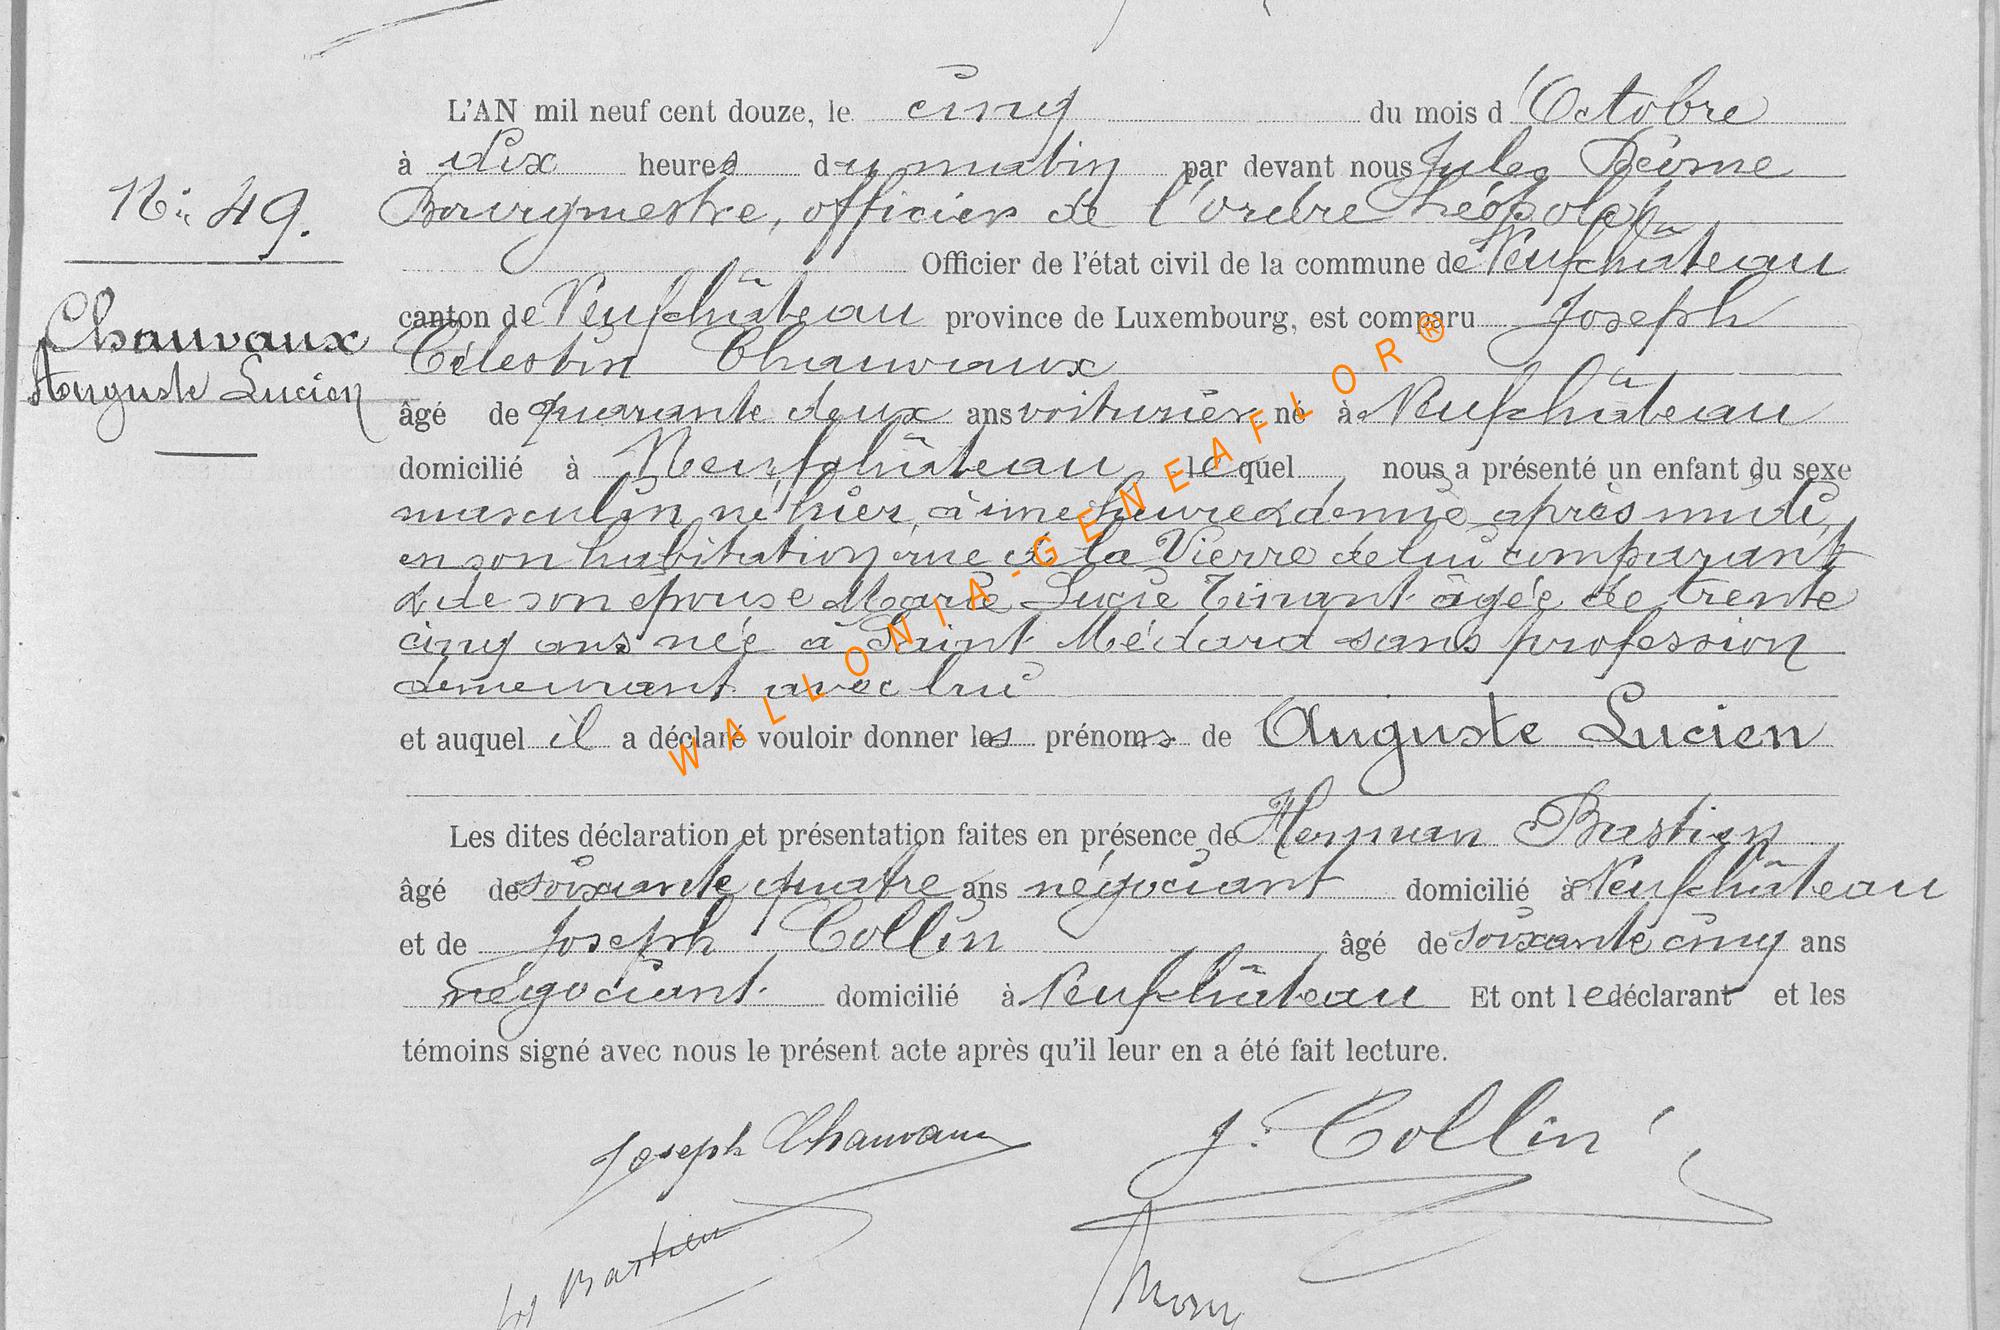 L'AN mil neuf cent douze, le cinq du mois d'Octobre
à dix heures du matin par devant nous Jules
N° 49.
Bourgmestre, officier de l'ordre Léopold
Officier de l'état civil de la commune de Neufchâteau
canton de Neufchâteau province de Luxembourg, est comparu Joseph
Chauvaux
Célestin Chauvaux
Auguste Lucien
âgé de quarante deux ans voiturier né à Neufchâteau
domicilié à Neufchâteau lequel nous a présenté un enfant du sexe
masculin né hier, à une heure & demie après midi,
en son habitation rue de la Vierre de lui comparant
& de son épouse Marie Lucie Tinant âgée de trente
cinq ans née à Saint Médard sans profession
demeurant avec lui
et auquel il a déclaré vouloir donner les prénoms de Auguste Lucien
Les dites déclaration et présentation faites en présence de Herman Bastien
âgé de soixante quatre ans négociant domicilié à Neufchâteau
et de Joseph Collin âgé de soixante cinq ans
négociant domicilié à Neufchâteau Et ont le déclarant et les
témoins signé avec nous le présent acte après qu'il leur en a été fait lecture.
Joseph Chauvaux
J. Collin
Bastien
WALLONIA-GENEAFLOR®